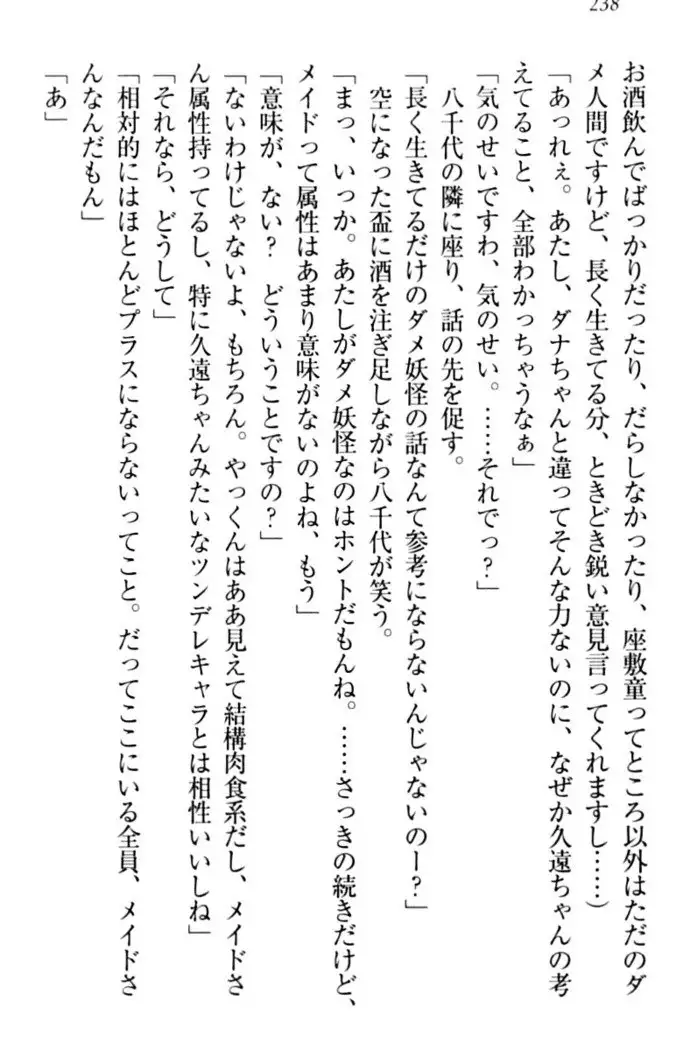 238
お酒飲んでばっかりだったり、だらしなかったり、座敷童ってところ以外はただのダ
メ人間ですけど、長く生きてる分、ときどき鋭い意見言ってくれますし……）
「あっれぇ。あたし、ダナちゃんと違ってそんな力ないのに、なぜか久遠ちゃんの考
えてること、全部わかっちゃうなぁ」
「気のせいですわ、気のせい。……それでっ？」
　八千代の隣に座り、話の先を促す。
「長く生きてるだけのダメ妖怪の話なんて参考にならないんじゃないのー？」
　空になった盃に酒を注ぎ足しながら八千代が笑う。
「まっ、いっか。あたしがダメ妖怪なのはホントだもんね。……さっきの続きだけど、
メイドって属性はあまり意味がないのよね、もう」
「意味が、ない？　どういうことですの？」
「ないわけじゃないよ、もちろん。やっくんはああ見えて結構肉食系だし、メイドさ
ん属性持ってるし、特に久遠ちゃんみたいなツンデレキャラとは相性いいしね」
「それなら、どうして」
「相対的にはほとんどプラスにならないってこと。だってここにいる全員、メイドさ
んなんだもん」
「あ」